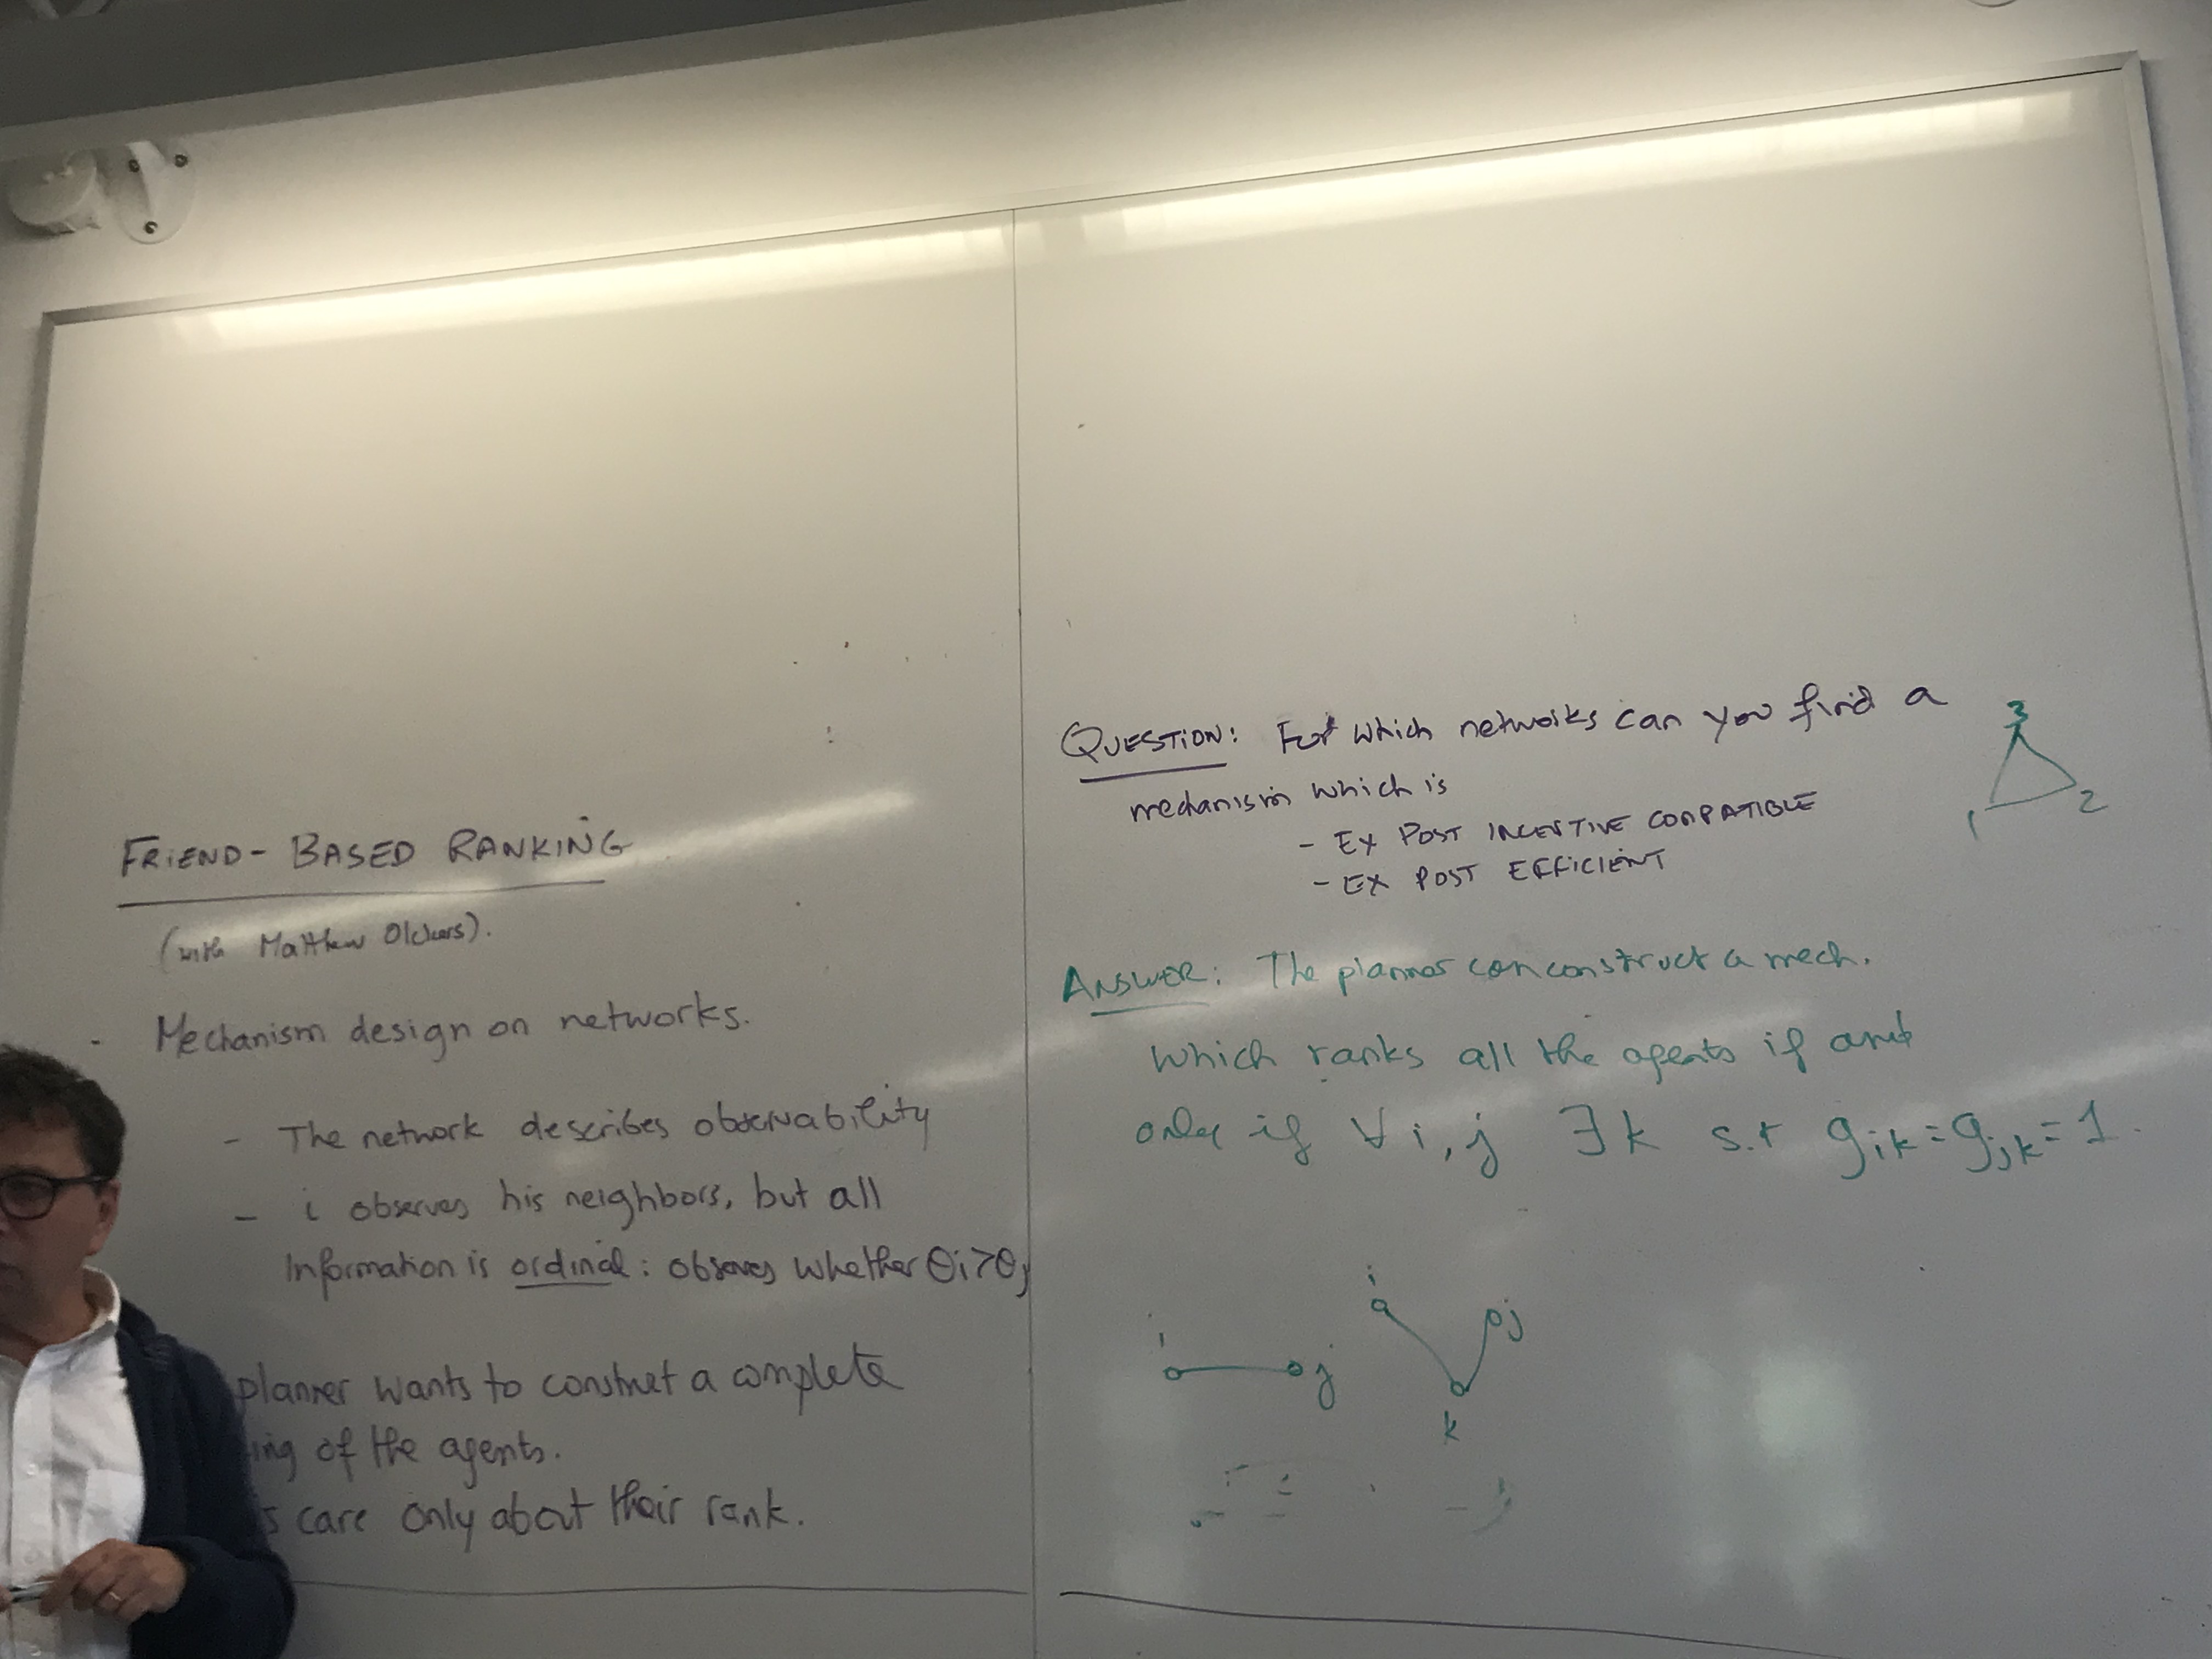 FRIEND-BASED RANKING
(with Matthew Olckers).
- Mechanism design on networks.
- The network describes observability
- i observes his neighbors, but all
Information is ordinal: observes whether θi>θj
planner wants to construct a complete
ing of the agents.
s care only about their rank.
QUESTION: For which networks can you find a
mechanism which is
- EX POST INCENTIVE COMPATIBLE
- EX POST EFFICIENT
3
1
2
ANSWER: The planner can construct a mech.
which ranks all the agents if and
only if ∀ i, j ∃ k s.t gik = gjk = 1.
i j
i j
k